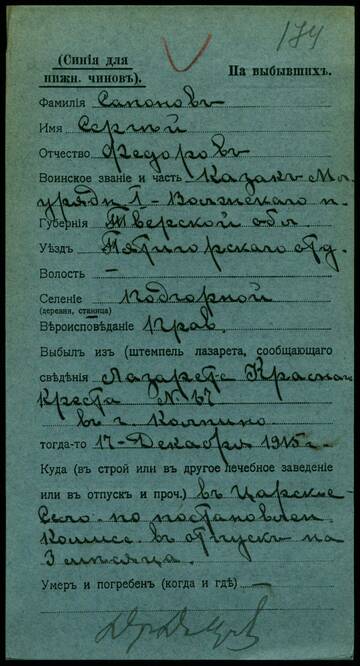 174
(Синія для
нижн. чиновъ).
На выбывшихъ.
Фамилія Сапоновъ
Имя Сергѣй
Отчество Федоровъ
Воинское званіе и часть Казакъ
1-Волжскаго п.
Губернія Терской обл.
Уѣздъ Пятигорскаго отд.
Волость —
Селеніе Подгорной
(деревня, станица)
Вѣроисповѣданіе Прав.
Выбылъ изъ (штемпель лазарета, сообщающаго
свѣдѣнія Лазаретъ Краснаго
Креста № 67
въ г. Колпино
тогда-то 17-Декабря 1915 г.
Куда (въ строй или въ другое лечебное заведеніе
или въ отпускъ и проч.) въ Царское-
Село по постановлен.
Комисс. въ отпускъ на
3 мѣсяца.
Умеръ и погребенъ (когда и гдѣ)